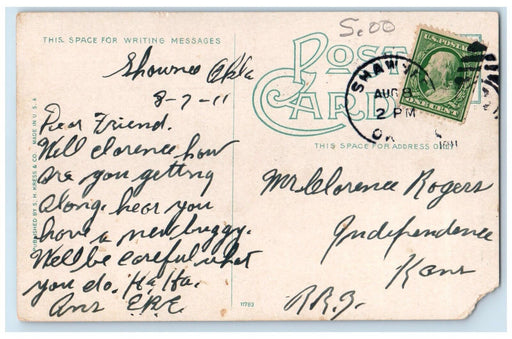 5.00
THIS SPACE FOR WRITING MESSAGES
POST CARD
THIS SPACE FOR ADDRESS ONLY
U.S. POSTAGE
ONE CENT
SHAWNEE
AUG 8
2 PM
OK
1911
Shawnee Okla
8-7-11
Dear Friend.
Well clarence how
are you getting
along. hear you
have a new buggy.
Well be careful what
you do. Ha Ha.
Ans E.R.C.
Mr Clarence Rogers
Independence
Kans
R.R.3.
PUBLISHED BY S. H. KRESS & CO. MADE IN U.S.A.
11783